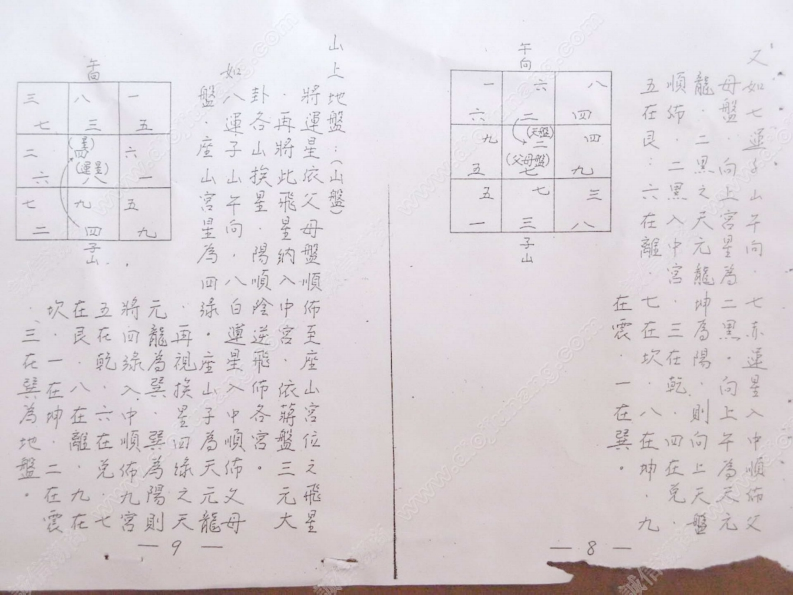 又如七運子山午向．七赤運星入中順佈父
母盤．向上宮星為二黑．向上午為天元
龍．二黑之天元龍坤為陽．則向上天盤
順佈．二黑入中宮．三在乾．四在兌．
五在艮．六在離．七在坎．八在坤．九
在震．一在巽。
午向
一 六 八
六 二 四
(天盤)
九 二 四
(父母盤)
五 七 九
五 七 三
一 三 八
子山
— 8 —
山上地盤：(山盤)
將運星依父母盤順佈至座山宮位之飛星
．再將此飛星納入中宮．依蔣盤三元大
卦各山挨星．陽順陰逆飛佈各宮。
如八運子山午向．八白運星入中順佈父母
盤．座山宮星為四綠。座山子為天元龍
．再視挨星四綠之天
元龍為巽．巽為陽則
將四綠入中順佈九宮
五在乾．六在兌．七
在艮．八在離．九在
坎．一在坤．二在震
．三在巽為地盤。
午向
三 八 一
七 三 五
二 四 六
(運星)
六 八 一
七 九 五
二 四 九
子山
— 9 —